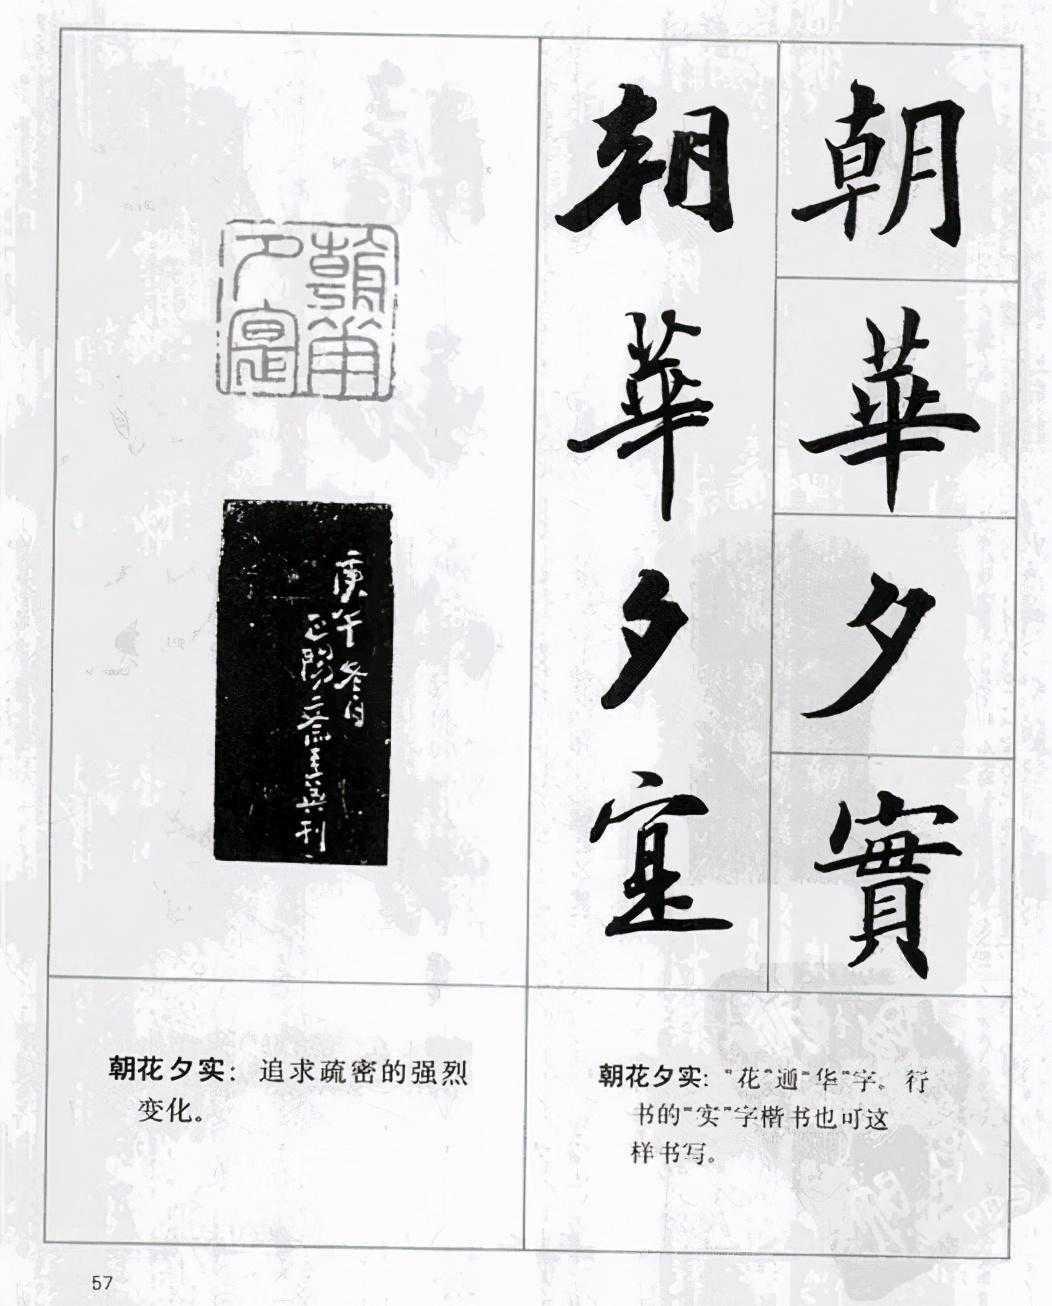 朝華夕實
朝華夕寔
朝華夕寔
庚午冬月
正陽齋刊
朝花夕实：追求疏密的强烈
变化。
朝花夕实：“花”通“华”字。行
书的“实”字楷书也可这
样书写。
57